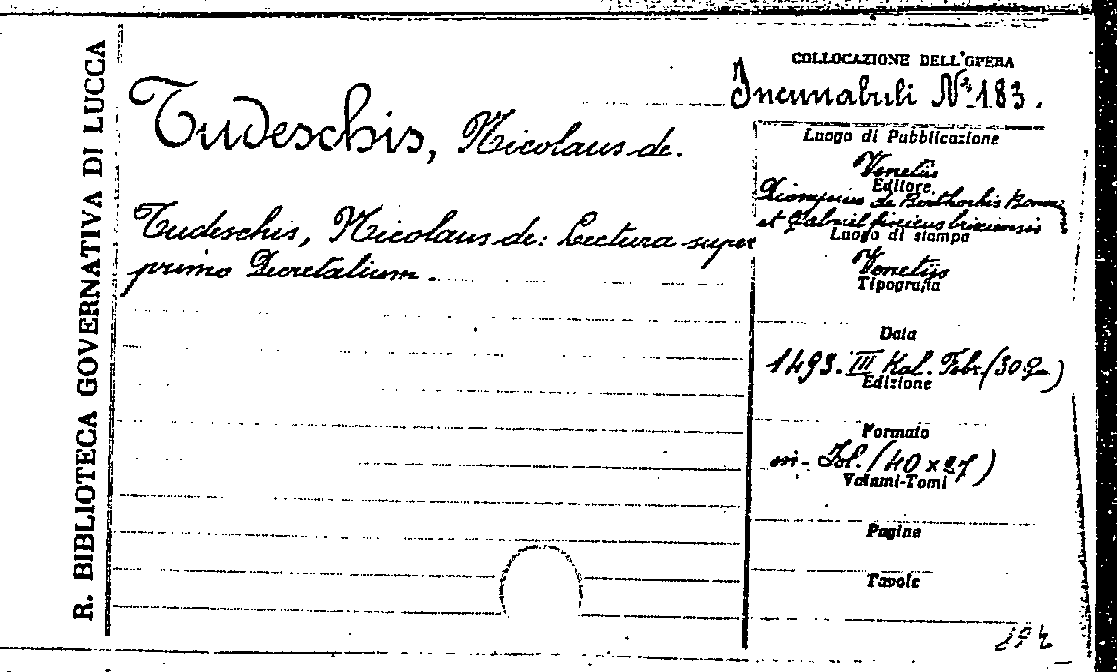 R. BIBLIOTECA GOVERNATIVA DI LUCCA
COLLOCAZIONE DELL'OPERA
Incunabuli Nº 183.
Tudeschis, Nicolaus de.
Tudeschis, Nicolaus de: Lectura super
primo Decretalium.
Luogo di Pubblicazione
Venetiis
Editore
de
et Gabriel brixiensis
Luogo di stampa
Venetijs
Tipografia
Data
1493. III Kal. Febr. (30 )
Edizione
Formato
in- Fol. (40 x 27)
Volumi-Tomi
Pagine
Tavole